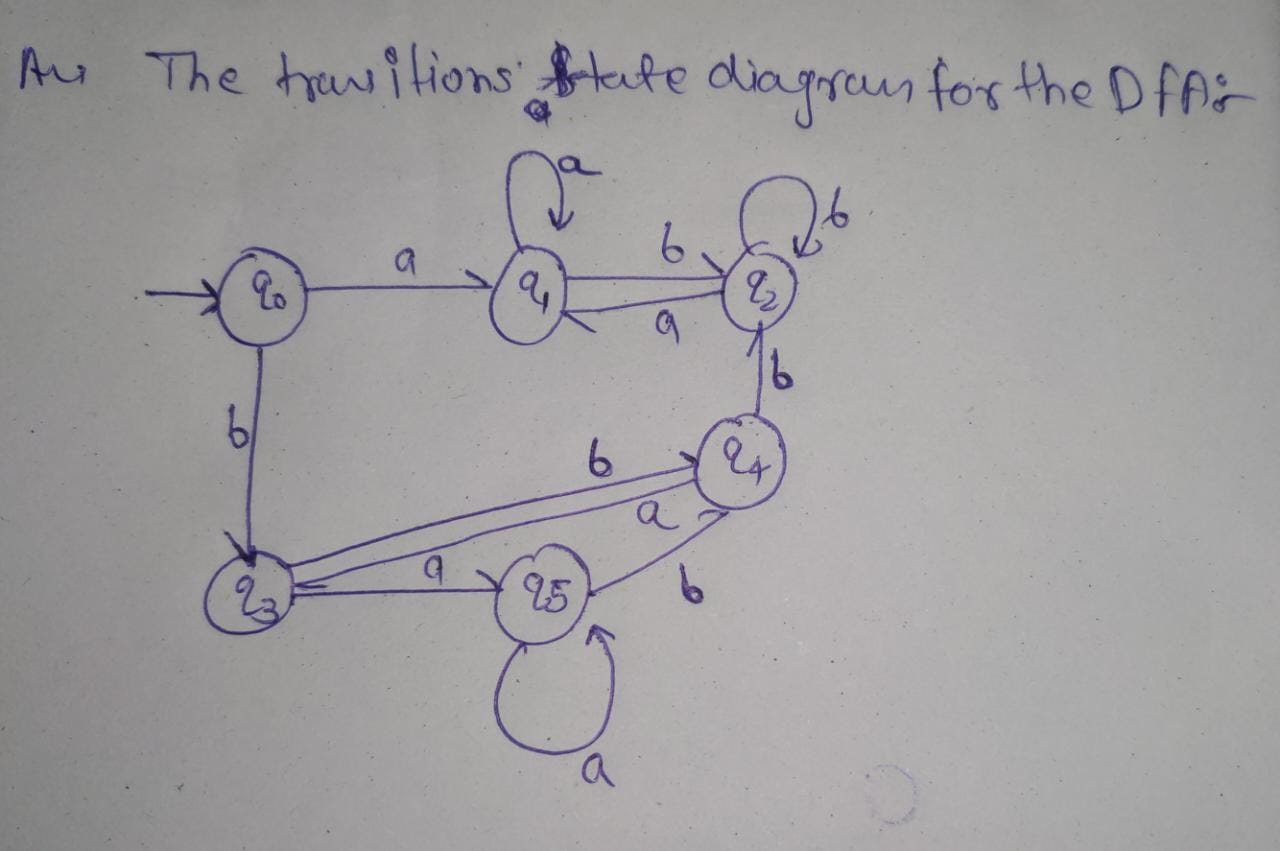 Ans The transitions state diagram for the DfA:-
a
b
a
b
q0
q1
q2
a
b
b
b
q4
a
a
q3
q5
b
a